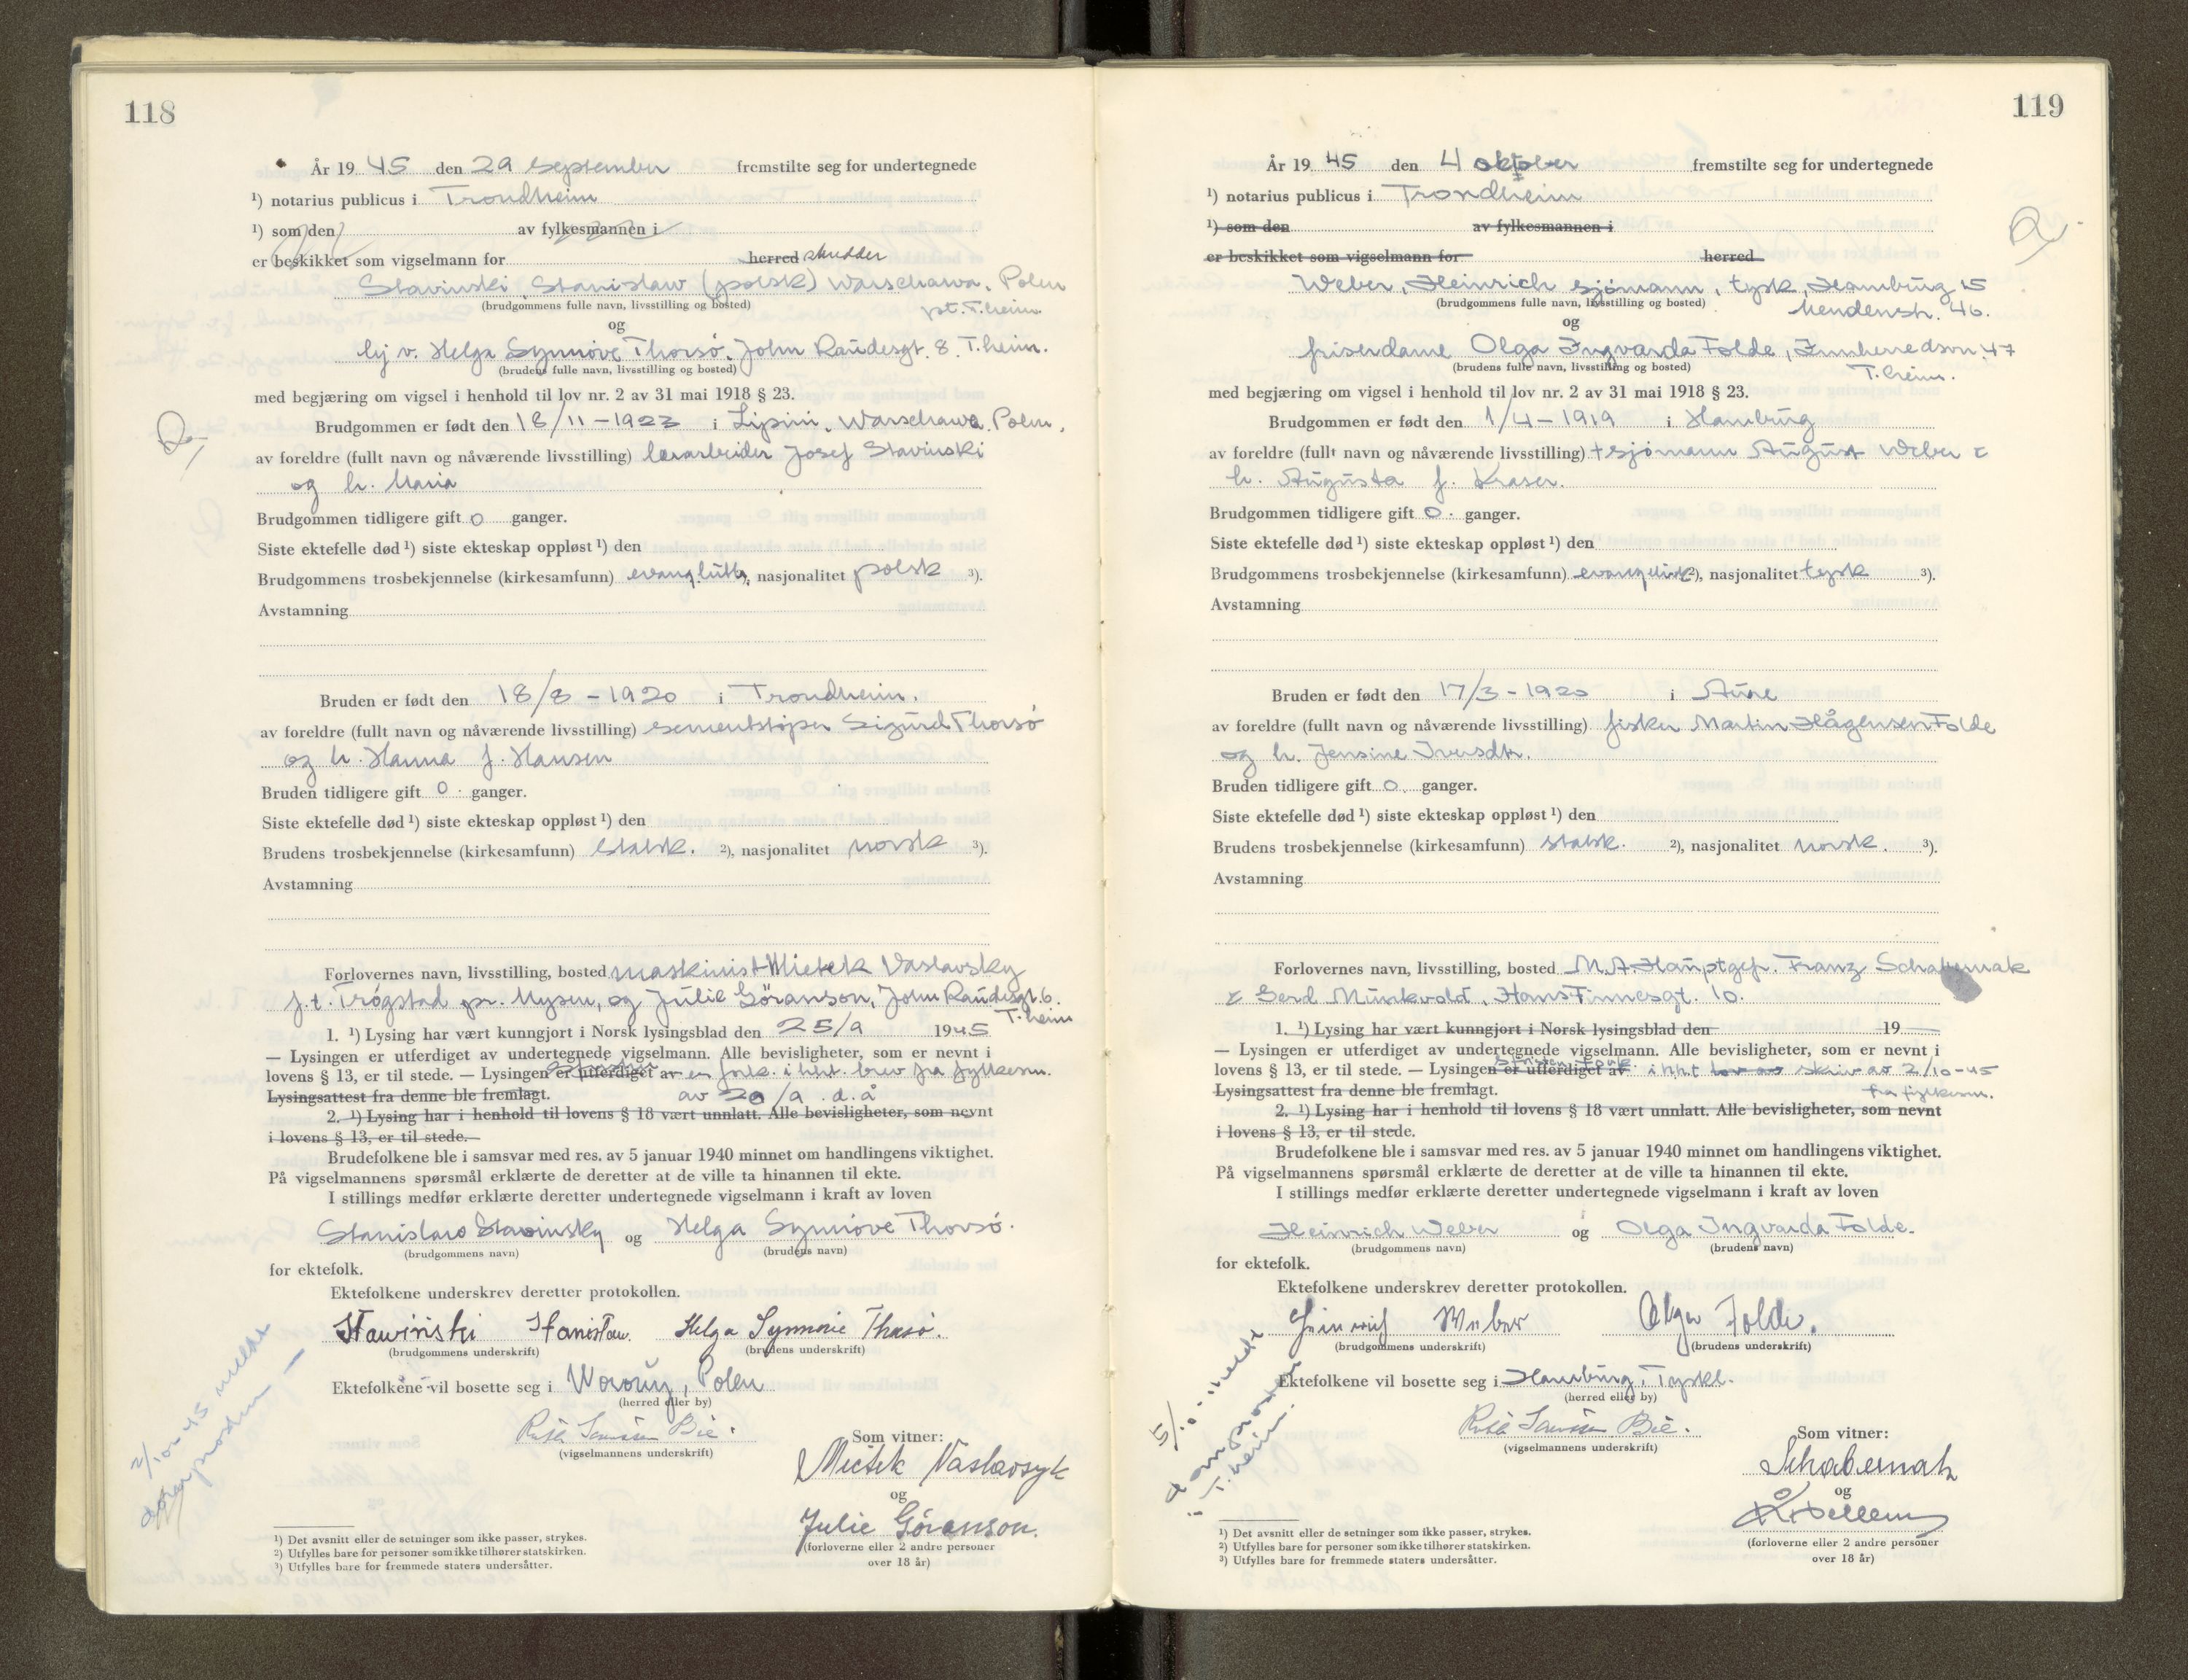 118
År 19 45 den 29 September fremstilte seg for undertegnede
¹) notarius publicus i Trondheim
¹) som den av fylkesmannen i
er beskikket som vigselmann for herred skredder
Stavinski, Stanislaw (polsk) Warschawa, Polen
(brudgommens fulle navn, livsstilling og bosted) pt. T.heim
og
hj v. Helga Synnøve Thorsø, John Raudesgt. 8 T.heim.
(brudens fulle navn, livsstilling og bosted)
med begjæring om vigsel i henhold til lov nr. 2 av 31 mai 1918 § 23.
Brudgommen er født den 18/11-1923 i Lipini, Warschawa, Polen,
av foreldre (fullt navn og nåværende livsstilling) Josef Stavinski
og h. Maria
Brudgommen tidligere gift 0 ganger.
Siste ektefelle død ¹) siste ekteskap oppløst ¹) den
Brudgommens trosbekjennelse (kirkesamfunn) evang.luth, nasjonalitet polsk ³).
Avstamning
Bruden er født den 18/8-1920 i Trondheim.
av foreldre (fullt navn og nåværende livsstilling) sementstøper Sigurd Thorsø
og h. Hanna f. Hansen
Bruden tidligere gift 0. ganger.
Siste ektefelle død ¹) siste ekteskap oppløst ¹) den
Brudens trosbekjennelse (kirkesamfunn) statsk. ²), nasjonalitet norsk ³).
Avstamning
Forlovernes navn, livsstilling, bosted maskinist Mietek Vaslavsky
f.t. Trøgstad pr. Mysen, og Julie Göranson, John Raudesgt. 6.
T.heim
1. ¹) Lysing har vært kunngjort i Norsk lysingsblad den 25/9 1945
— Lysingen er utferdiget av undertegnede vigselmann. Alle bevisligheter, som er nevnt i
lovens § 13, er til stede. — Lysingen er utferdiget av en fork. i hht. brev fra fylkesm.
Lysingsattest fra denne ble fremlagt. av 20/9 d.å
2. ¹) Lysing har i henhold til lovens § 18 vært unnlatt. Alle bevisligheter, som nevnt
i lovens § 13, er til stede.
Brudefolkene ble i samsvar med res. av 5 januar 1940 minnet om handlingens viktighet.
På vigselmannens spørsmål erklærte de deretter at de ville ta hinannen til ekte.
I stillings medfør erklærte deretter undertegnede vigselmann i kraft av loven
Stanislaw Stavinsky og Helga Synnøve Thorsø.
(brudgommens navn) (brudens navn)
for ektefolk.
Ektefolkene underskrev deretter protokollen.
Stawinski Stanisław. Helga Synnøve Thorsø.
(brudgommens underskrift) (brudens underskrift)
Ektefolkene vil bosette seg i Polen
(herred eller by)
2/10-45 meldt
(vigselmannens underskrift)
Som vitner:
Mietek Vaslavsyk
og
Julie Göranson.
(forloverne eller 2 andre personer
over 18 år)
¹) Det avsnitt eller de setninger som ikke passer, strykes.
²) Utfylles bare for personer som ikke tilhører statskirken.
³) Utfylles bare for fremmede staters undersåtter.
119
År 19 45 den 4 oktober fremstilte seg for undertegnede
¹) notarius publicus i Trondheim
¹) som den av fylkesmannen i
er beskikket som vigselmann for herred
Weber, Heinrich sjømann, tysk, Hamburg 15
(brudgommens fulle navn, livsstilling og bosted) 46.
og
friserdame Olga Ingvarda Folde, Innherredsvn. 47
(brudens fulle navn, livsstilling og bosted) T.heim.
med begjæring om vigsel i henhold til lov nr. 2 av 31 mai 1918 § 23.
Brudgommen er født den 1/4-1919 i Hamburg
av foreldre (fullt navn og nåværende livsstilling) + sjømann August Weber &
h. Augusta f. Kraser.
Brudgommen tidligere gift 0. ganger.
Siste ektefelle død ¹) siste ekteskap oppløst ¹) den
Brudgommens trosbekjennelse (kirkesamfunn) ²), nasjonalitet tysk ³).
Avstamning
Bruden er født den 17/3-1920 i Aure
av foreldre (fullt navn og nåværende livsstilling) fisker Martin Hågensen Folde
og h. Jensine Iversdtr.
Bruden tidligere gift 0 ganger.
Siste ektefelle død ¹) siste ekteskap oppløst ¹) den
Brudens trosbekjennelse (kirkesamfunn) statsk. ²), nasjonalitet norsk. ³).
Avstamning
Forlovernes navn, livsstilling, bosted M.A. Hauptgefr. Franz Schabernak
& Gerd Munkvold, Hans Finnesgt. 10.
1. ¹) Lysing har vært kunngjort i Norsk lysingsblad den 19
— Lysingen er utferdiget av undertegnede vigselmann. Alle bevisligheter, som er nevnt i
lovens § 13, er til stede. — Lysingen er utferdiget av i hht skriv av 2/10-45
Lysingsattest fra denne ble fremlagt. fra fylkesm.
2. ¹) Lysing har i henhold til lovens § 18 vært unnlatt. Alle bevisligheter, som nevnt
i lovens § 13, er til stede.
Brudefolkene ble i samsvar med res. av 5 januar 1940 minnet om handlingens viktighet.
På vigselmannens spørsmål erklærte de deretter at de ville ta hinannen til ekte.
I stillings medfør erklærte deretter undertegnede vigselmann i kraft av loven
Heinrich Weber og Olga Ingvarda Folde.
(brudgommens navn) (brudens navn)
for ektefolk.
Ektefolkene underskrev deretter protokollen.
Heinrich Weber Olga Folde.
(brudgommens underskrift) (brudens underskrift)
Ektefolkene vil bosette seg i Hamburg, Tyskl.
(herred eller by)
i T.heim.
(vigselmannens underskrift)
Som vitner:
Schabernak
og
(forloverne eller 2 andre personer
over 18 år)
¹) Det avsnitt eller de setninger som ikke passer, strykes.
²) Utfylles bare for personer som ikke tilhører statskirken.
³) Utfylles bare for fremmede staters undersåtter.